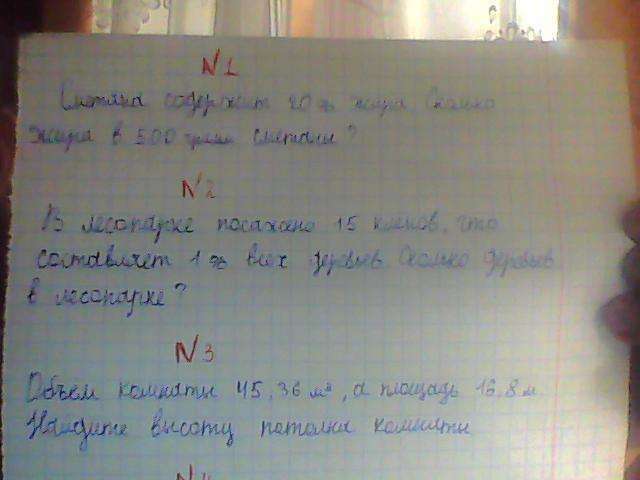 N1
Сметана содержит 20 % жира. Сколько
жира в 500 грамм сметаны?
N2
В лесопарке посажено 15 кленов, что
составляет 1 % всех деревьев. Сколько деревьев
в лесопарке?
N3
Объём комнаты 45,36 м³, а площадь 16,8 м
Найдите высоту потолка комнаты